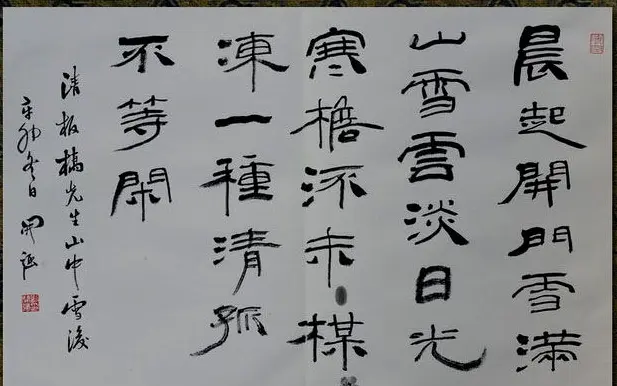 晨起開門雪滿
山雪雲淡日光
寒檐流未楳
凍一種清孤
不等閑
清板橋先生山中雪後
辛卯冬日